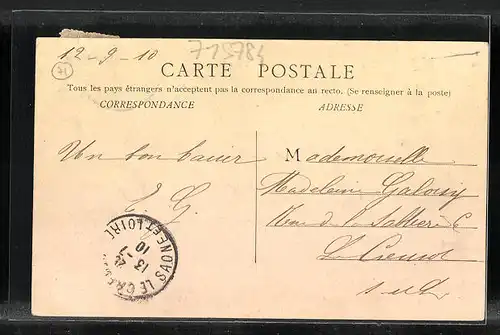 12-9-10
715784
71
CARTE POSTALE
Tous les pays étrangers n'acceptent pas la correspondance au recto. (Se renseigner à la poste)
CORRESPONDANCE
ADRESSE
Un bon baiser
Mademoiselle
Madeleine
Rue de la
Le Creusot
S. et L.
SAONE ET LOIRE
13 -7
10
LE